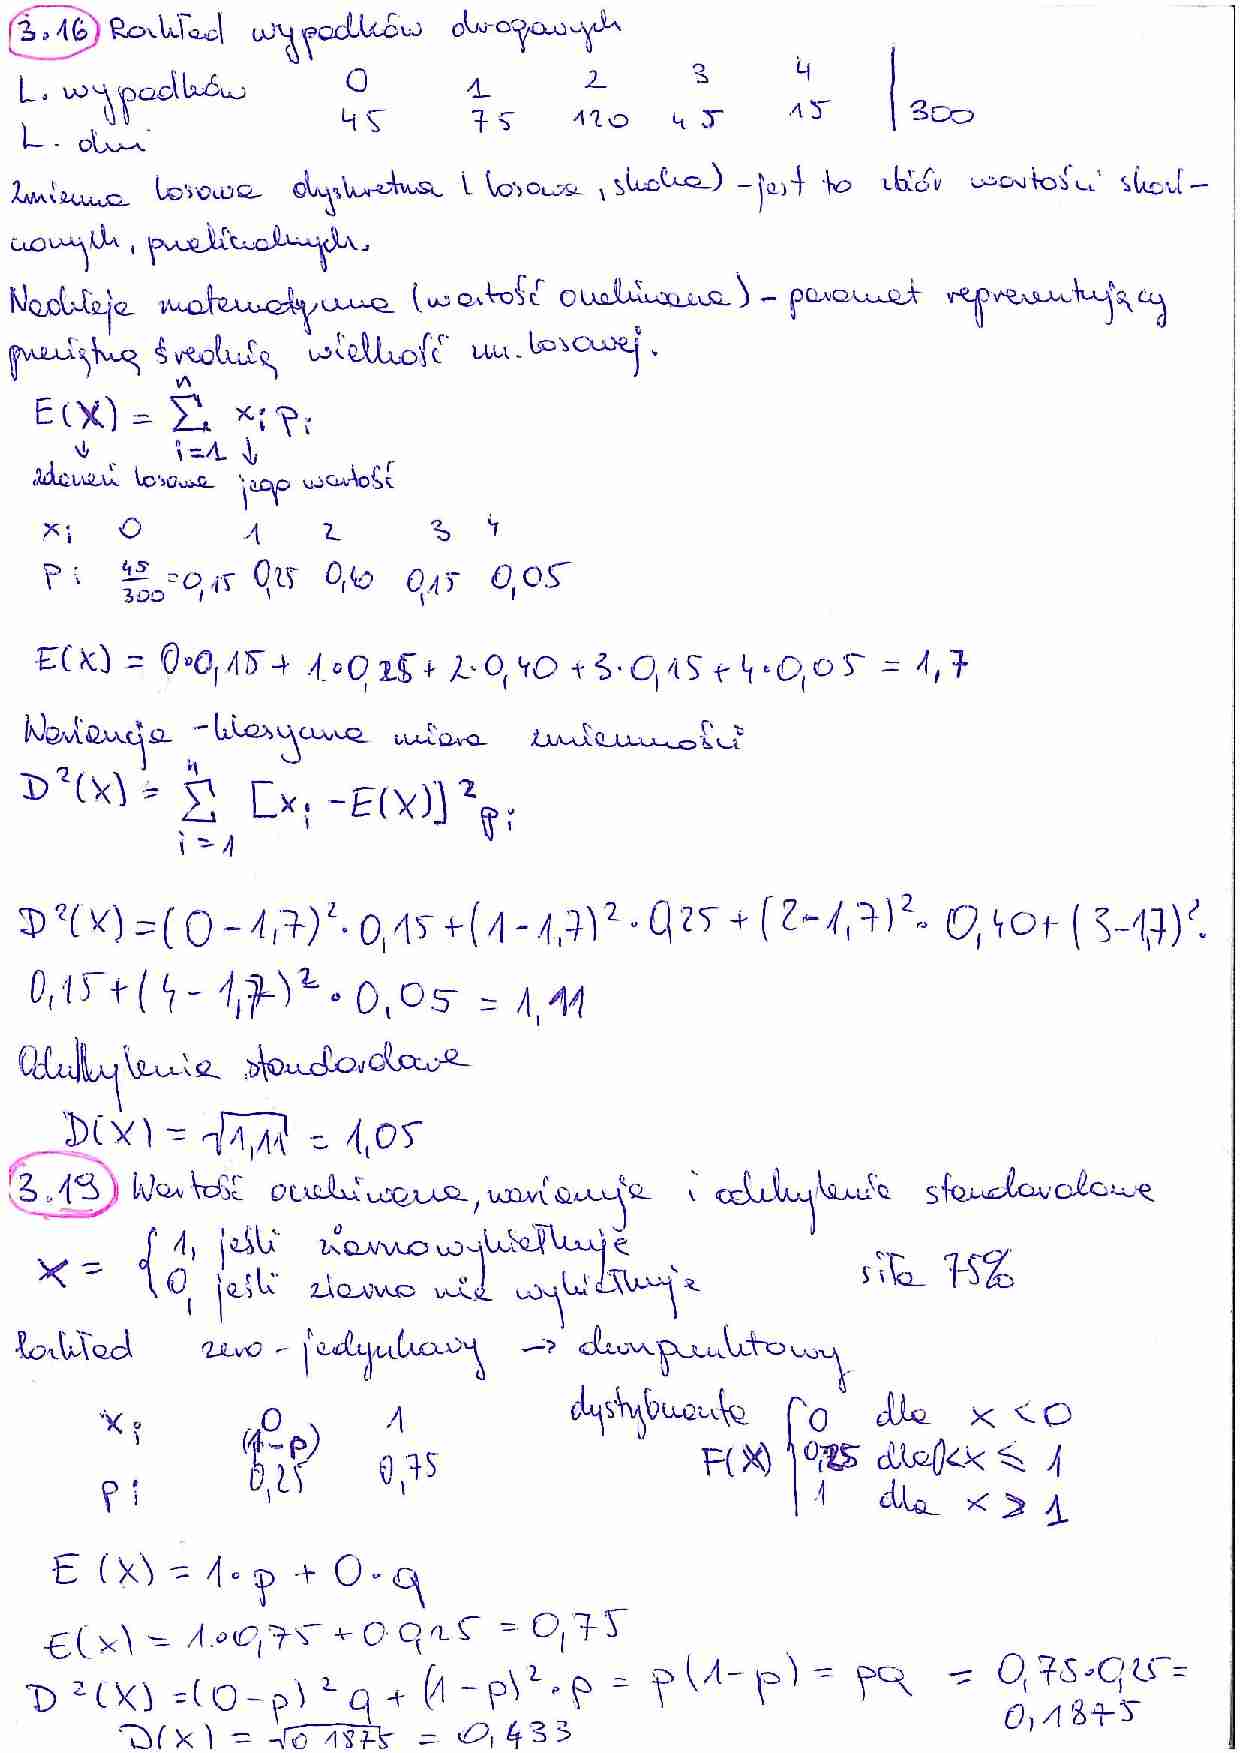 3.16 Rozkład wypadków drogowych
L. wypadków 0 1 2 3 4
L. dni 45 75 120 45 15 | 300
Zmienna losowa dyskretna (losowa, skoka) - jest to zbiór wartości skoń-
czonych, przeliczalnych.
Nadzieja matematyczna (wartość oczekiwana) - paramet reprezentujący
przeciętną średnią wielkość zm. losowej.
E(X) = n∑i=1 xi pi
↓ ↓
zdarzeń losowe jego wartość
xi 0 1 2 3 4
pi 45/300 = 0,15 0,25 0,40 0,15 0,05
E(X) = 0·0,15 + 1·0,25 + 2·0,40 + 3·0,15 + 4·0,05 = 1,7
Wariancja - klasyczna miara zmienności
D²(X) = n∑i=1 [xi - E(X)]² pi
D²(X) = (0-1,7)²·0,15 + (1-1,7)²·0,25 + (2-1,7)²·0,40 + (3-1,7)²·
0,15 + (4-1,7)²·0,05 = 1,11
Odchylenie standardowe
D(X) = √1,11 = 1,05
3.19 Wartość oczekiwana, wariancja i odchylenie standardowe
X = { 1, jeśli ziarno wykiełkuje
0, jeśli ziarno nie wykiełkuje siła 75%
Rozkład zero-jedynkowy → dwupunktowy
xi 0 1 dystybuanta { 0 dla x < 0
(1-p) F(X) 0,25 dla 0<x ≤ 1
pi 0,25 0,75 1 dla x ≥ 1
E(X) = 1·p + 0·q
E(x) = 1·0,75 + 0·0,25 = 0,75
D²(X) = (0-p)² q + (1-p)²·p = p(1-p) = pq = 0,75·0,25 =
0,1875
D(X) = √0,1875 = 0,433